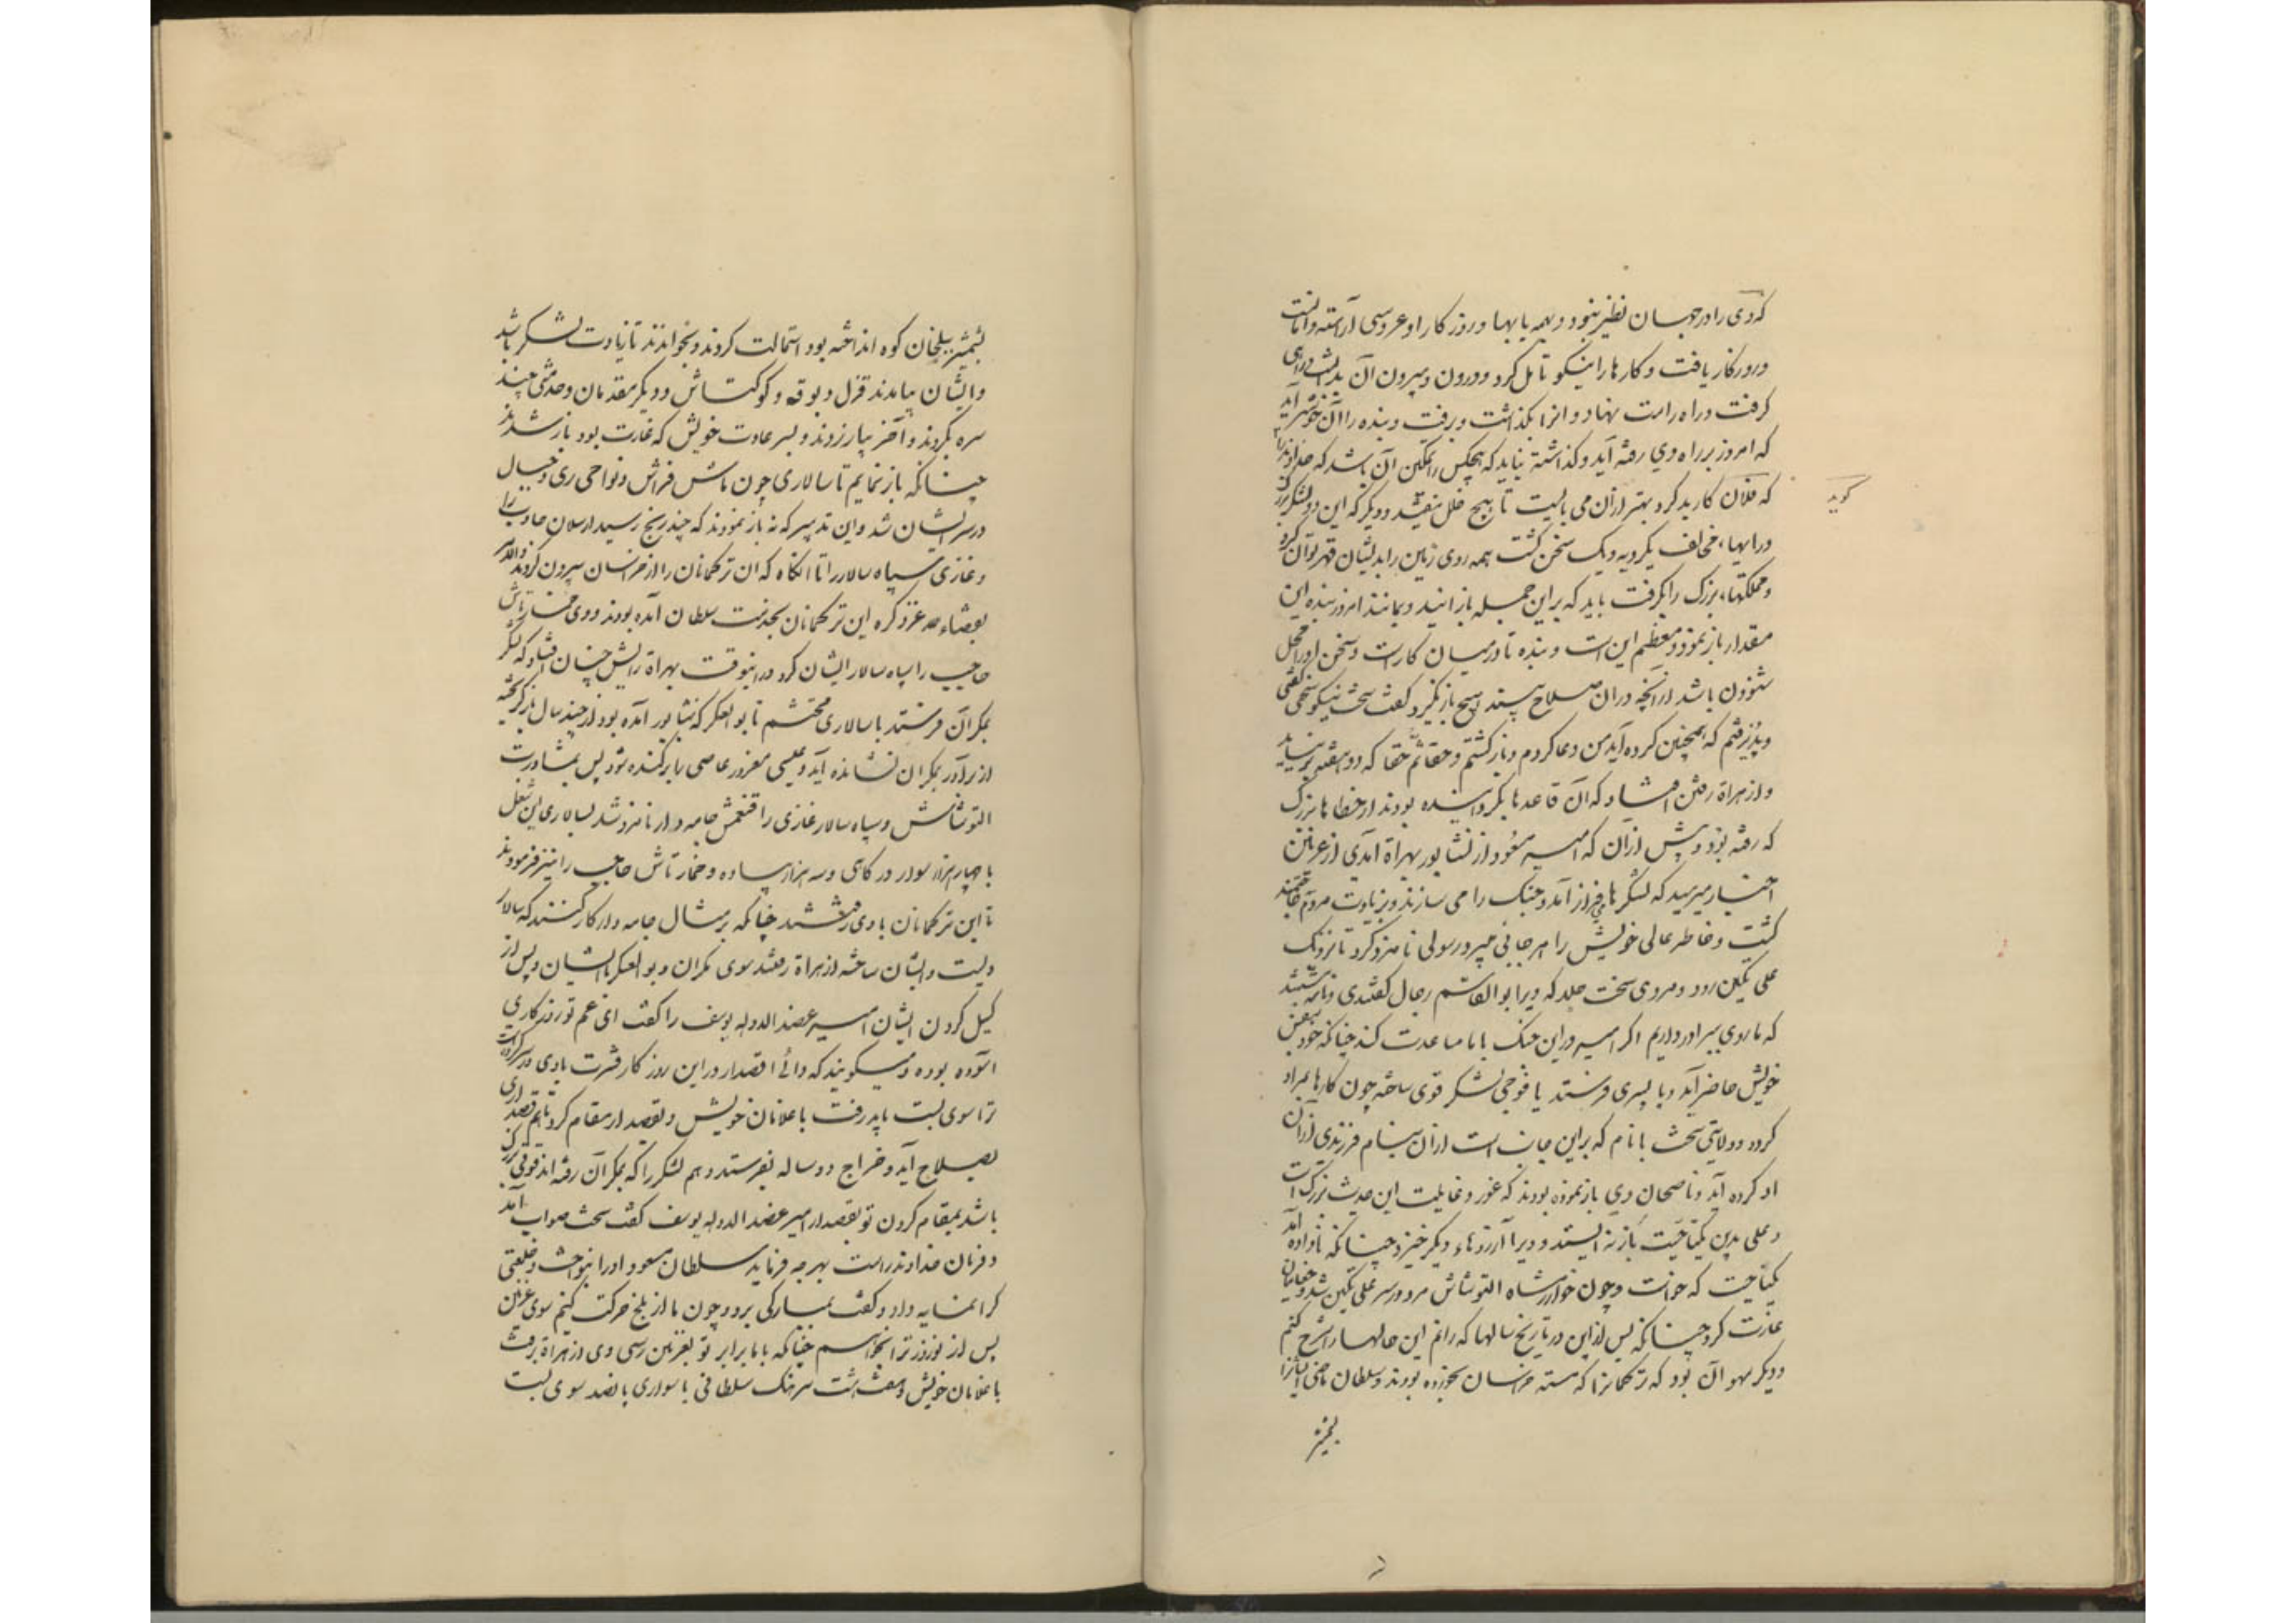 که وی را در جهان نظیر نبود و بهمه بابها و روزکار او عروسی آراسته را مانست
و روزکار یافت و کارها را نیکو تامل کرد و درون و بیرون آن بدانست و راهی
کرفت و راه راست بنهاد و آنرا بکذاشت و برفت و بنده را آن خوشتر آید
که امروز بر راه وی رفته آید و کذاشته نیاید که هیچکس را تمکین آن باشد که خداوند را
کوید
که فلان کار بد کرد بهتر ازان می بایست تا هیچ خلل نیفتد و دیکر که این دو لشکر بزرک
و رایهاء مخالف یکرویه و یک سخن کشت همه روی زمین را بدیشان قهر توان کرد
و مملکتهاء بزرک را بکرفت باید که براین جمله باز آیند و بمانند امروز بنده این
مقدار باز نمود و معظم این است و بنده تا در میان کار است و سخن او را محل
شنودن باشد از آنچه دران صلاح بیند هیچ باز نکیرد کفت سخت نیکو سخنی کفتی
و پذیرفتم که همچنین کرده آید من دعا کردم و بازکشتم و حقا ثم حقا که دو هفته برنیامد
و از هراة رفتن افتاد که آن قاعدها بکردانیده بودند از خطاها بزرک
که رفته بود پیش ازان که امیر مسعود از نشابور بهراة آمدی از غزنین
اخبار میرسید که لشکرها فراز آمد و جنک را می سازند و بزیادت مردم حاجتمند
کشت و خاطر عالی خویش را هر جائی میبرد رسولی نامزد کرد تا نزدیک
علی تکین رود و مردی سخت جلد که ویرا ابوالقاسم رحال کفتندی و نامه نبشتند
که ما روی ببرادر داریم اکر امیر در این جنک با ما مساعدت کند چنانکه خود بنفس
خویش حاضر آید و یا پسری فرستد با فوجی لشکر قوی ساخته چون کارها بمراد
کردد ولایتی سخت با نام که براین جانب است ازان بنام فرزندی ازان
او کرده آید و ناصحان وی باز نموده بودند که غور و غایت این حدیث بزرک است
و علی بدین یکناحیت باز نه ایستد و ویرا آرزوهاء دیکر خیزد چنانکه ناداده آمد
یکناحیت که خواست و چون خوارزمشاه التونتاش مرد در سر علی تکین شد و چغانیان
غارت کرد چنانکه پس ازین در تاریخ سالها که رانم این حالها را شرح کنم
و دیکر سهو آن بود که ترکمانرا که مسته خراسان بخورده بودند و سلطان ماضی ایشانرا
بشمشیر
بشمشیر ببلخان کوه انداخته بود استمالت کردند و بخواندند تا زیادت لشکر باشد
و ایشان بیامدند قزل و بوقه و کوکتاش و دیکر مقدمان و خدمتی چند
سره بکردند و آخر بیازردند و بسر عادت خویش که غارت بود باز شدند
چنانکه باز نمایم تا سالاری چون تاش فراش و نواحی ری و جبال
در سر ایشان شد و این تدبیر که نه باز نمودند که چند رنج رسید ارسلان جاذب را
و غازی سپاه سالار را تا آنکاه که آن ترکمانان را از خراسان بیرون کردند و لامرد
لقضاء الله عز ذکره این ترکمانان بخدمت سلطان آمده بودند و وی خمارتاش
حاجب را سپاه سالار ایشان کرد در اینوقت بهراة رایش چنان افتاد که لشکر
بمکران فرستد با سالاری محتشم تا بوالعسکر که نشابور آمده بود از چند سال باز کریخته
از برادر بمکران نشانده آید و عیسی مغرور عاصی را برکنده شود پس بمشاورت
التونتاش و سپاه سالار غازی را قتغمش جامه دار نامزد شد بسالاری این شغل
با چهار هزار سوار درکاهی و سه هزار پیاده و خمارتاش حاجب را نیز فرمودند
تا این ترکمانان با وی رفتند چنانکه بر مثال جامه دار کار کنند که سالار
ویست و ایشان ساخته از هراة رفتند سوی مکران و بوالعسکر با ایشان و پس از
کسیل کردن ایشان امیر عضدالدوله یوسف را کفت ای عم تو روزکاری
آسوده بوده و میکویند که والی قصدار در این روزکار فترت بادی در سر کرده است
ترا سوی بست باید رفت با غلامان خویش و بقصدار مقام کرد تا هم قصداری
بصلاح آید و خراج دو ساله بفرستد و هم لشکر را که بمکران رفته اند قوتی بزرک
باشد بمقام کردن تو بقصدار امیر عضدالدوله یوسف کفت سخت صواب آمد
و فرمان خداوند راست بهرچه فرماید سلطان مسعود او را بنواخت و خلعتی
کرانمایه داد و کفت بمبارکی برو و چون ما از بلخ حرکت کنیم سوی غزنین
پس از نوروز ترا بخوانیم چنانکه با ما برابر تو بغزنین رسی وی از هراة برفت
با غلامان خویش و هفت هشت سرهنک سلطانی با سواری پانصد سوی بست